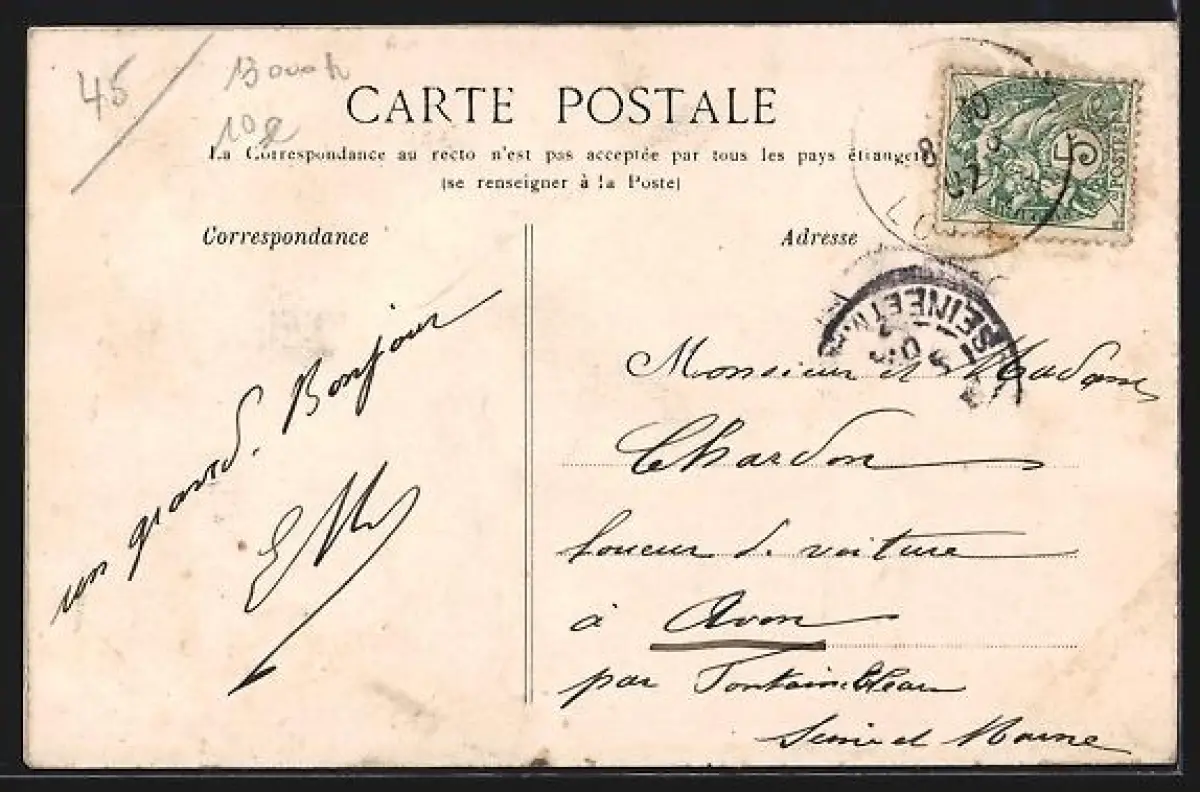 45
CARTE POSTALE
La Correspondance au recto n'est pas acceptée par tous les pays étrangers
(se renseigner à la Poste)
Correspondance
Adresse
5
POSTES
SEINE ET M
un grand. Bonjour
Monsieur et Madame
Chardon
loueur de voiture
à Avon
par Fontainebleau
Seine et Marne